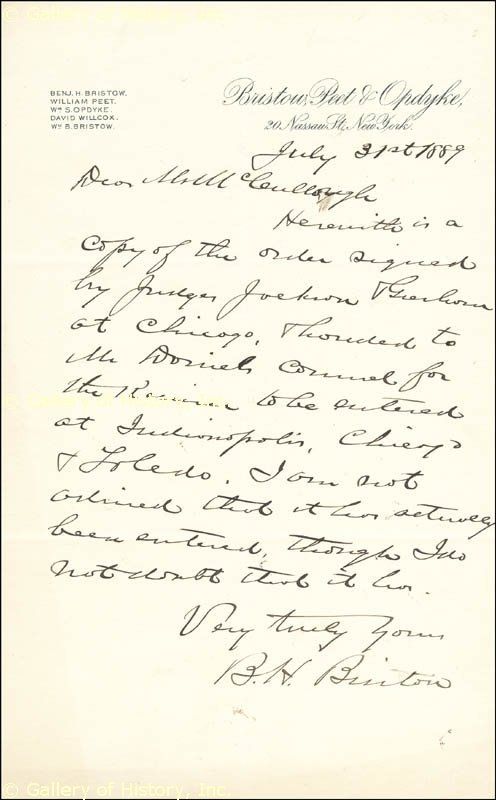 © Gallery of History, Inc.
BENJ. H. BRISTOW.
WILLIAM PEET.
Wm S. OPDYKE.
DAVID WILLCOX.
Wm B. BRISTOW.
Bristow, Peet & Opdyke,
20 Nassau St, New York.
July 31st 1889
Dear Mr McCullough
Herewith is a
copy of the order signed
by Judges Jackson & Gresham
at Chicago, & handed to
Mr Daniels Counsel for
the Receiver to be entered
at Indianapolis, Chicago
& Toledo. I am not
advised that it has actually
been entered, though I do
not doubt that it has.
Very truly yours
B. H. Bristow
© Gallery of History, Inc.
© Gallery of History, Inc.